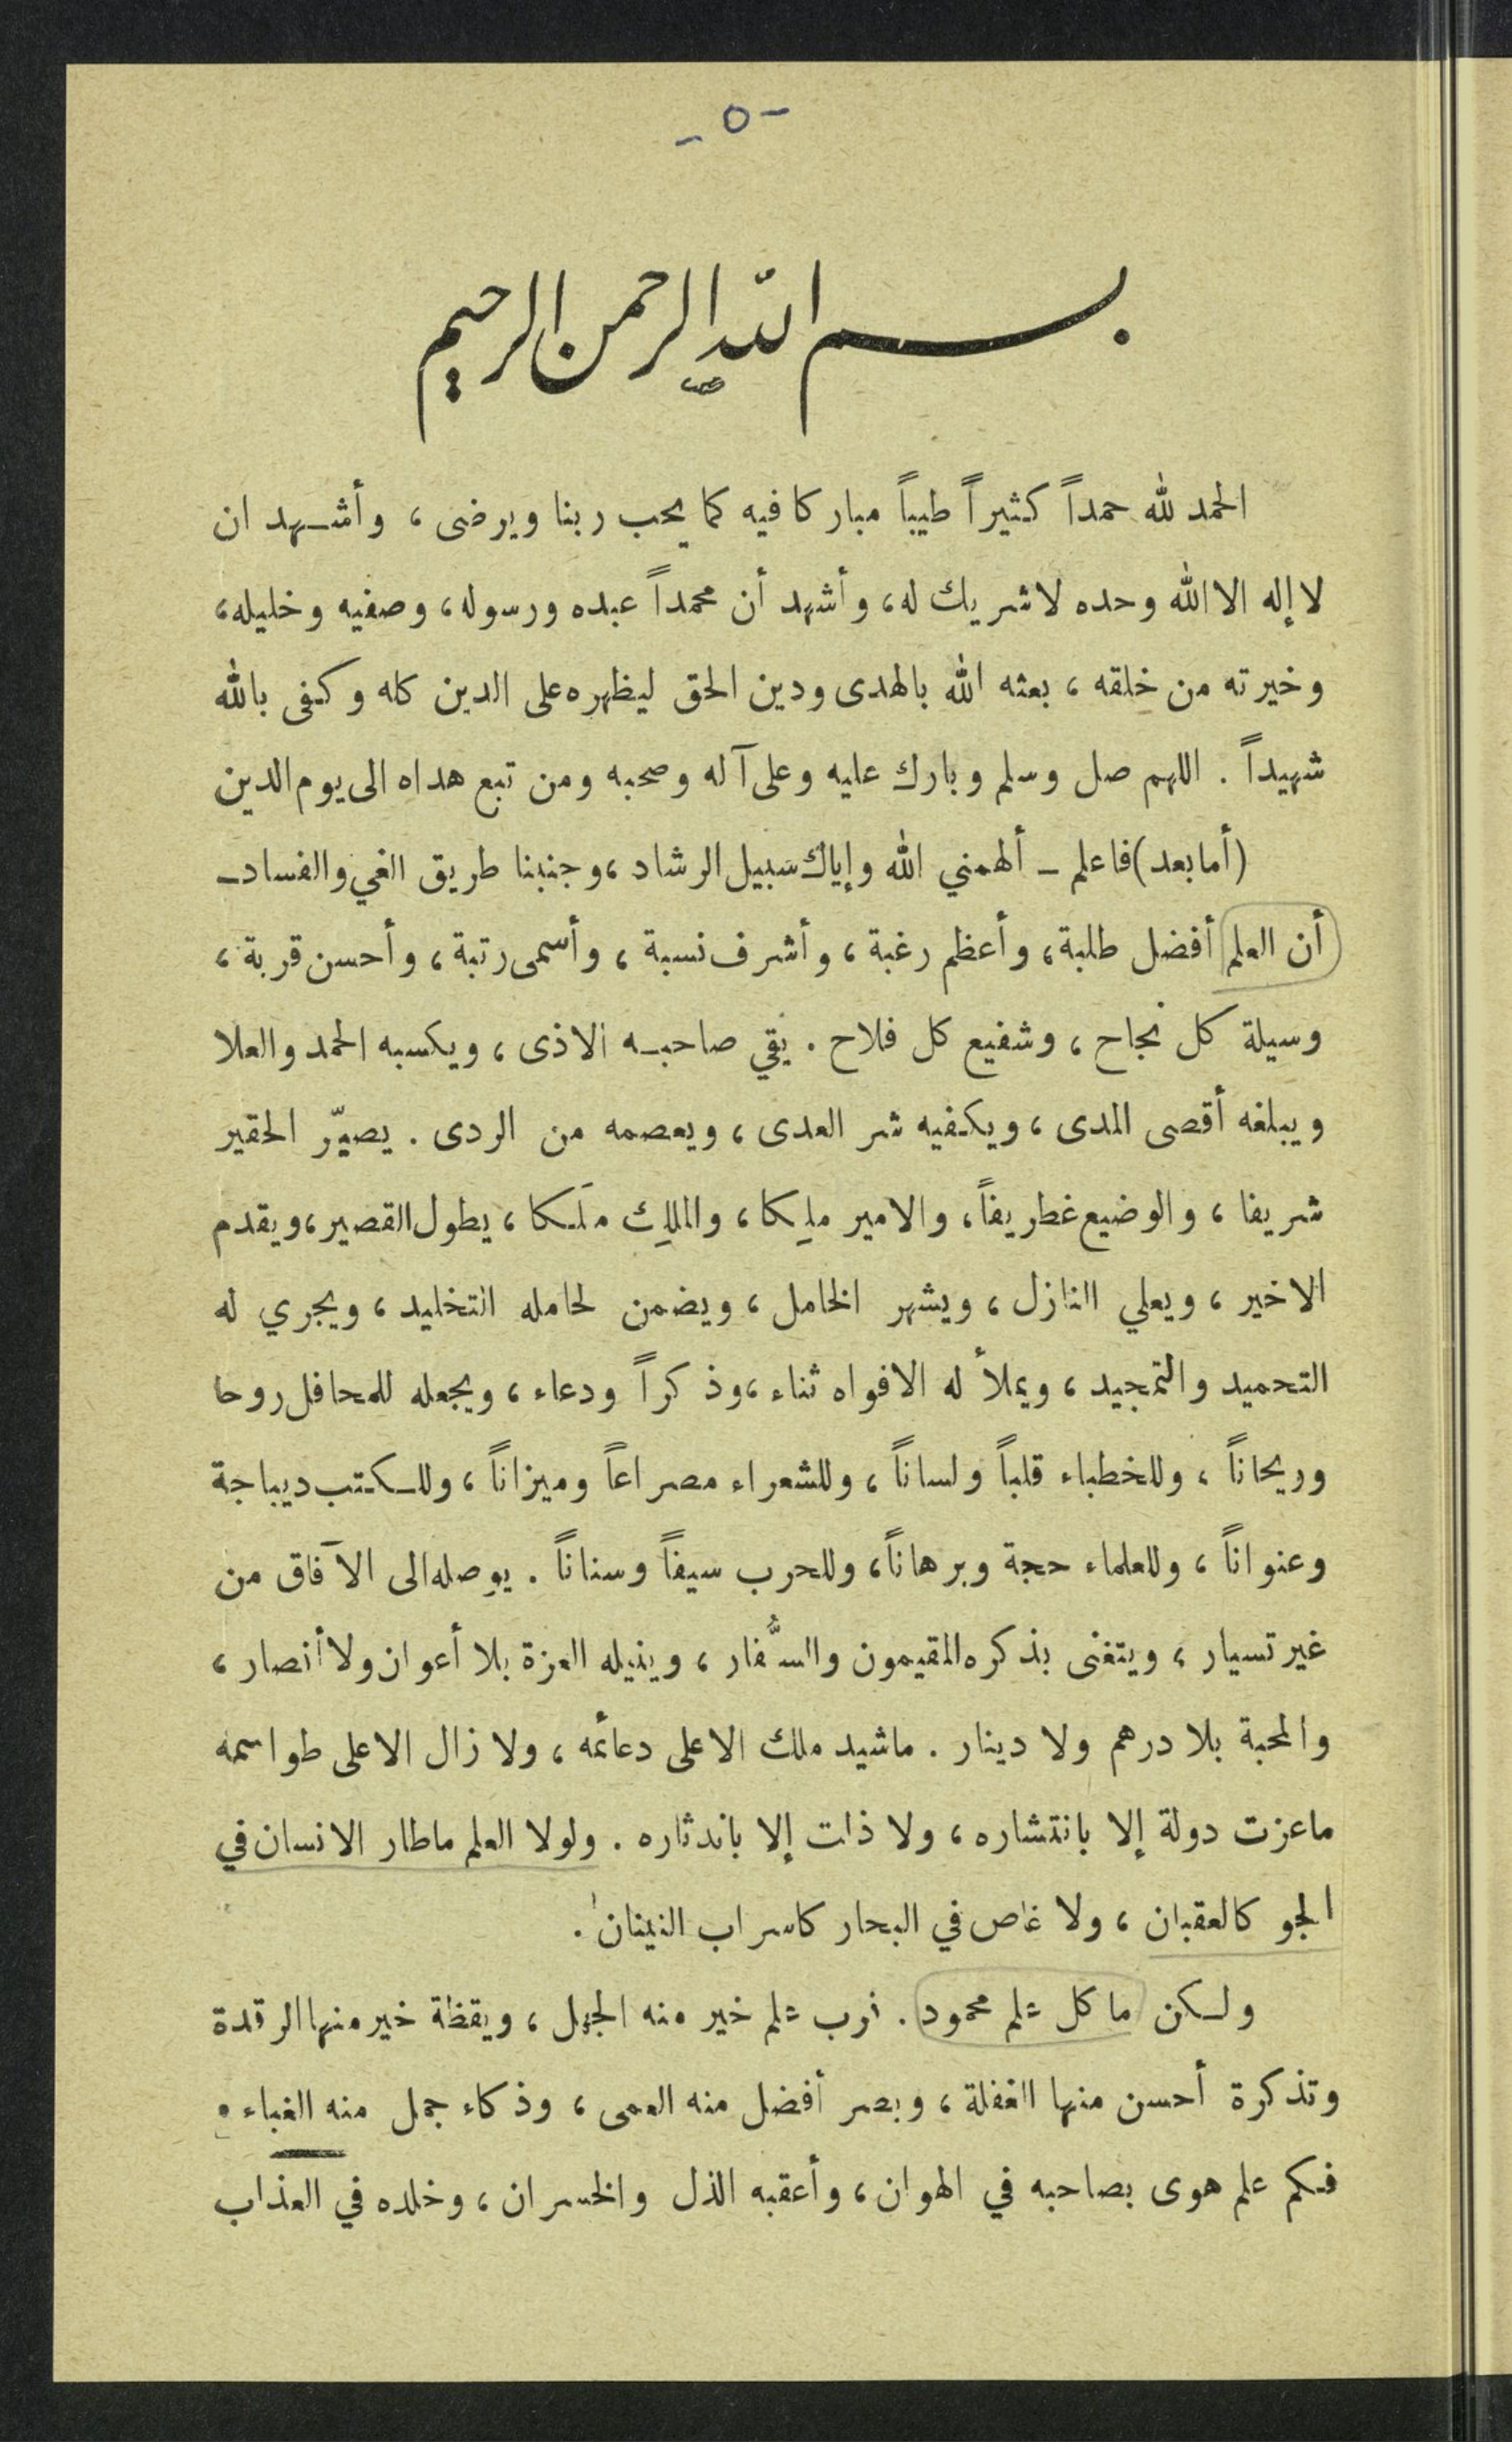 - ٥ -
بسم الله الرحمن الرحيم
الحمد لله حمداً كثيراً طيباً مباركا فيه كما يحب ربنا ويرضى ، وأشهد ان
لا إله الا الله وحده لاشريك له، وأشهد أن محمداً عبده ورسوله، وصفيه وخليله،
وخيرته من خلقه ، بعثه الله بالهدى ودين الحق ليظهره على الدين كله وكفى بالله
شهيداً . اللهم صل وسلم وبارك عليه وعلى آله وصحبه ومن تبع هداه الى يوم الدين
(أما بعد) فاعلم ـ ألهمني الله وإياك سبيل الرشاد ، وجنبنا طريق الغي والفساد ـ
أن العلم أفضل طلبة، وأعظم رغبة ، وأشرف نسبة ، وأسمى رتبة، وأحسن قربة ،
وسيلة كل نجاح ، وشفيع كل فلاح . يقي صاحبه الاذى ، ويكسبه الحمد والعلا
ويبلغه أقصى المدى ، ويكفيه شر العدى ، ويعصمه من الردى . يصيّر الحقير
شريفا ، والوضيع غطريفاً، والامير ملِكا، والملِك ملَكا ، يطول القصير، ويقدم
الاخير ، ويعلي النازل ، ويشهر الخامل ، ويضمن لحامله التخليد ، ويجري له
التحميد والتمجيد ، ويملأ له الافواه ثناء ، وذكراً ودعاء ، ويجعله للمحافل روحا
وريحاناً ، وللخطباء قلباً ولساناً ، وللشعراء مصراعاً وميزاناً ، وللكتب ديباجة
وعنواناً ، وللعلماء حجة وبرهاناً، وللحرب سيفاً وسناناً . يوصله الى الآفاق من
غير تسيار ، ويتغنى بذكره المقيمون والسُّفار ، وينيله العزة بلا أعوان ولا أنصار ،
والمحبة بلا درهم ولا دينار . ماشيد ملك الا على دعائمه ، ولا زال الا على طواسمه
ماعزت دولة إلا بانتشاره ، ولا ذلت إلا باندثاره . ولولا العلم ماطار الانسان في
الجو كالعقبان ، ولا غاص في البحار كاسراب النينان .
ولكن ما كل علم محمود . فرب علم خير منه الجهل ، ويقظة خير منها الرقدة
وتذكرة أحسن منها الغفلة ، وبصر أفضل منه العمى ، وذكاء جمل منه الغباء .
فكم علم هوى بصاحبه في الهوان ، وأعقبه الذل والخسران ، وخلده في العذاب